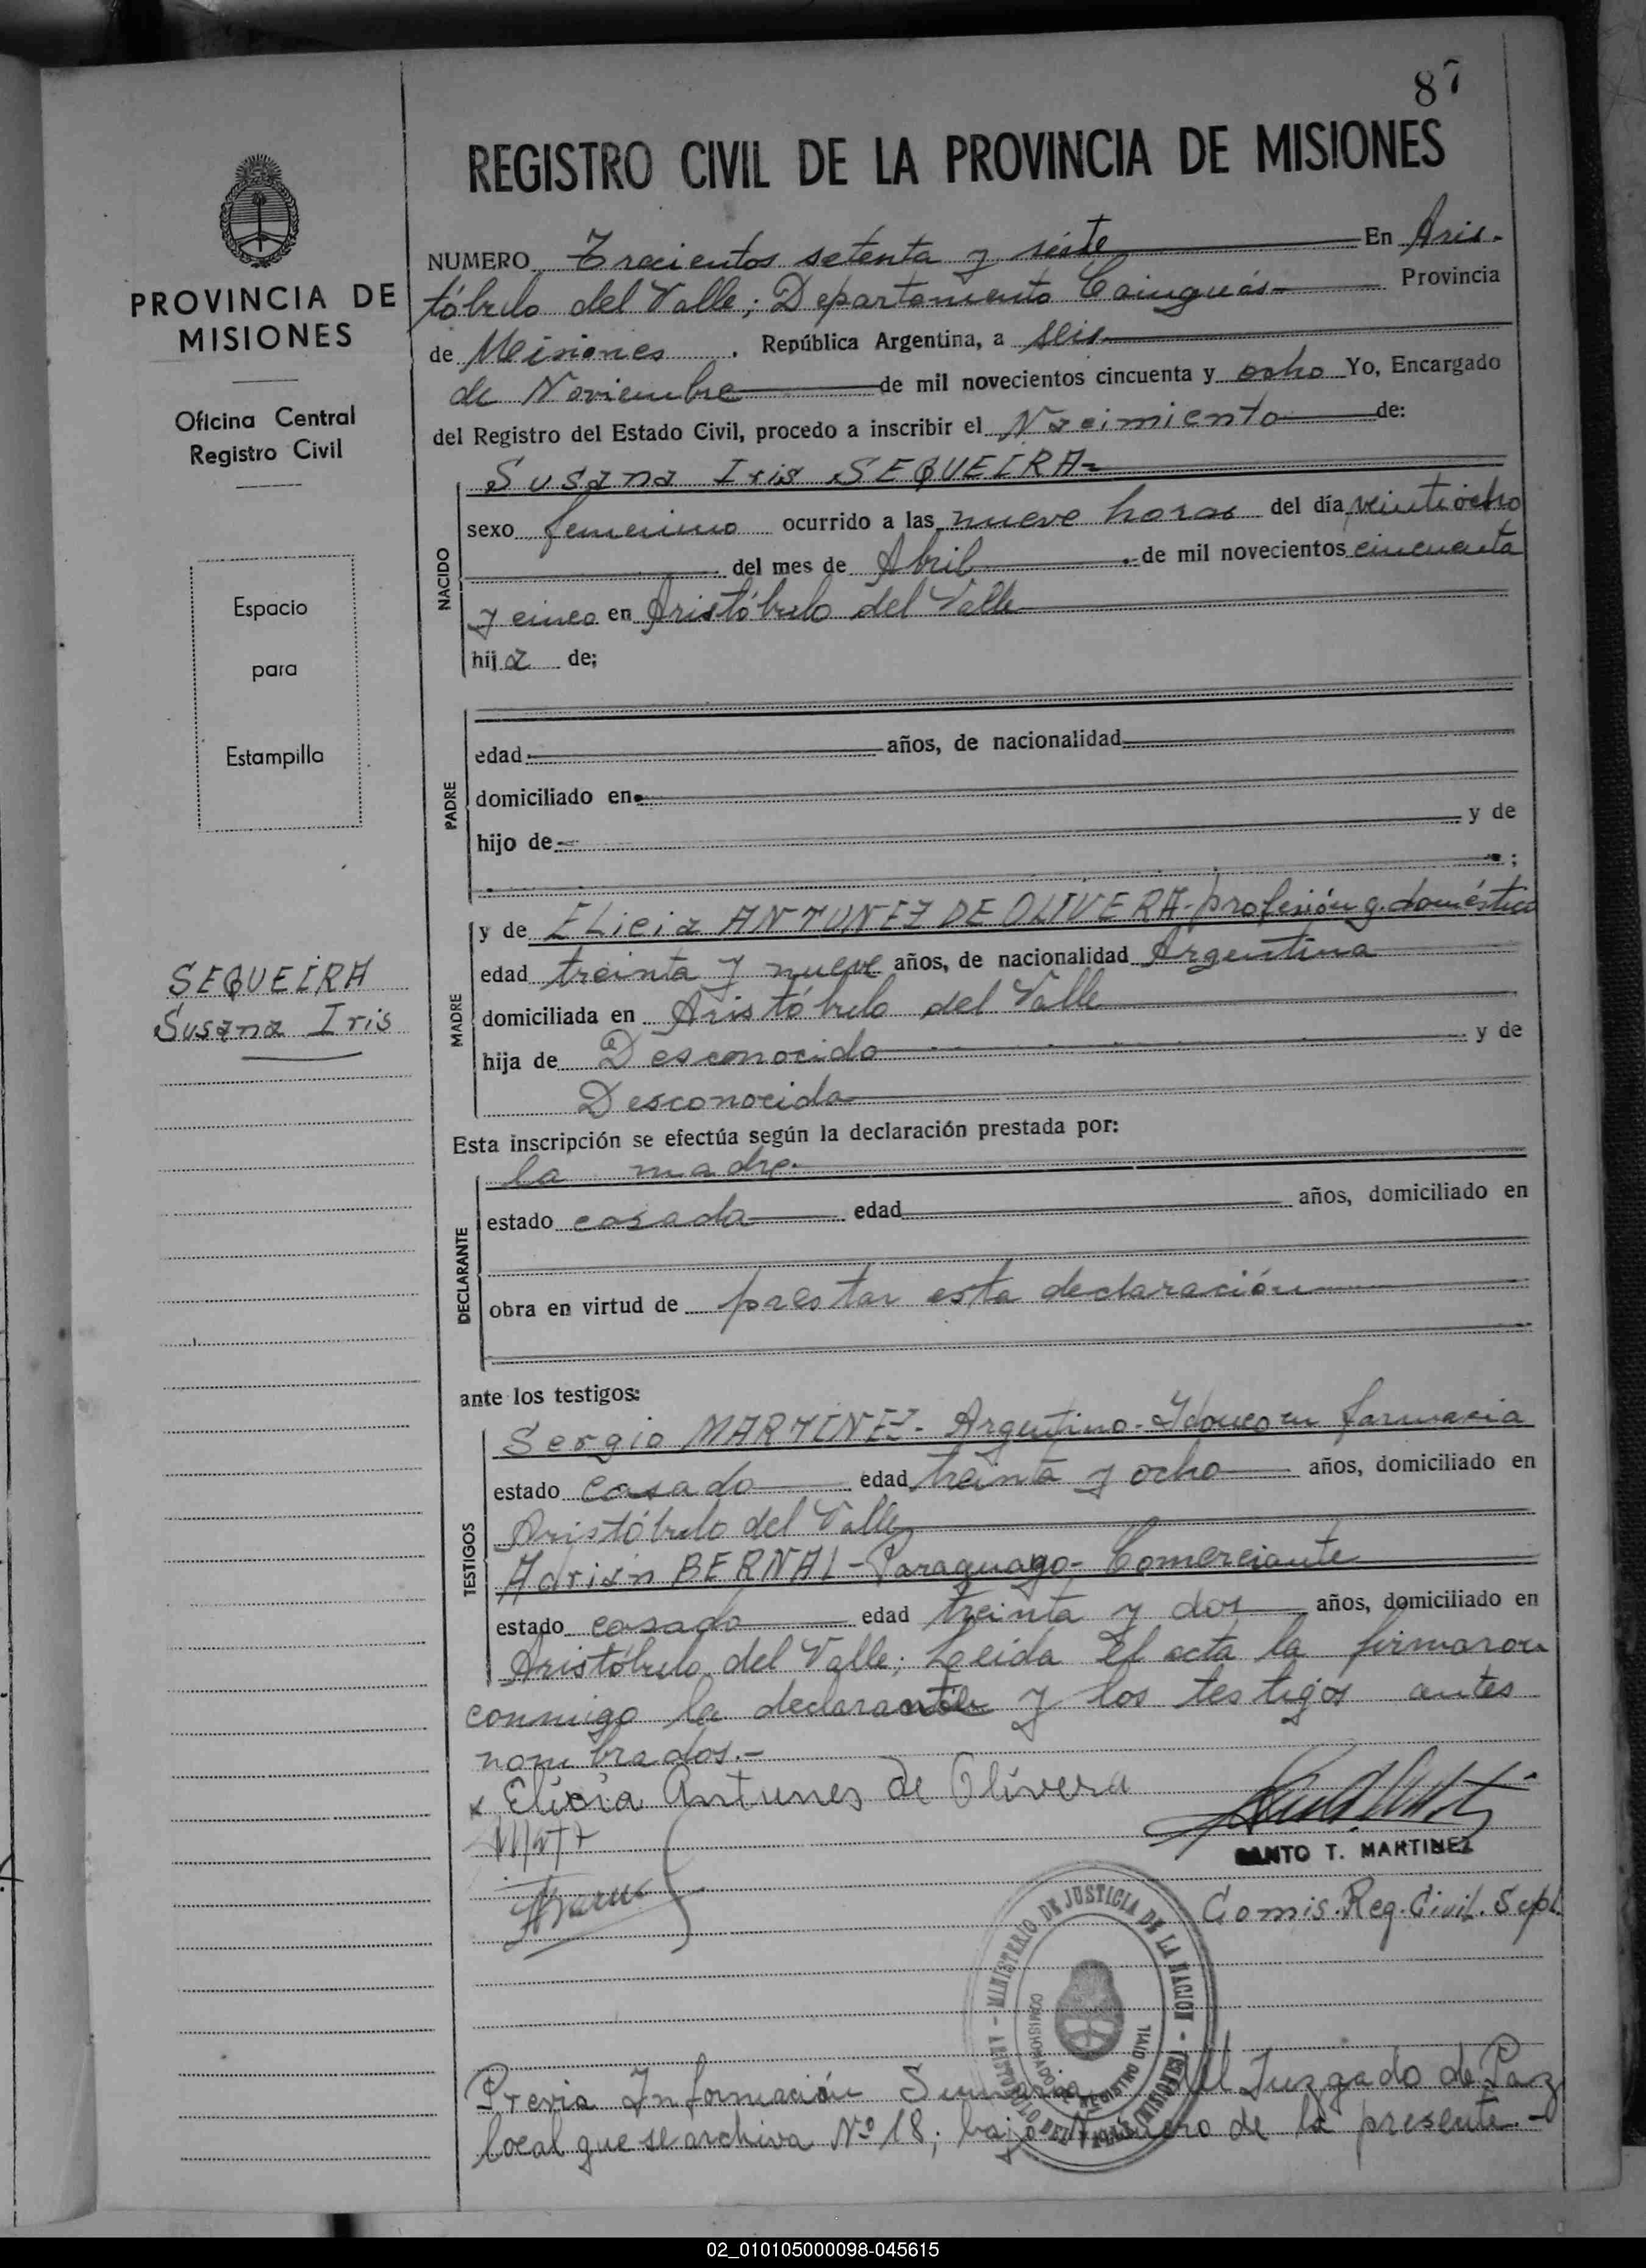 87
REGISTRO CIVIL DE LA PROVINCIA DE MISIONES
PROVINCIA DE
MISIONES
Oficina Central
Registro Civil
Espacio
para
Estampilla
SEQUEIRA
Susana Iris
NUMERO Trecientos setenta y siete En Aris-
tóbulo del Valle; Departamento Cainguás Provincia
de Misiones. República Argentina, a seis
de Noviembre de mil novecientos cincuenta y ocho Yo, Encargado
del Registro del Estado Civil, procedo a inscribir el Nacimiento de:
NACIDO
Susana Iris SEQUEIRA=
sexo femenino ocurrido a las nueve horas del día veintiocho
del mes de Abril de mil novecientos cincuenta
y cinco en Aristóbulo del Valle
hija de;
PADRE
edad años, de nacionalidad
domiciliado en
hijo de y de
;
MADRE
y de ELicia ANTUNEZ DE OLIVERA-profesión q. doméstico
edad treinta y nueve años, de nacionalidad Argentina
domiciliada en Aristóbulo del Valle
hija de Desconocido y de
Desconocida
Esta inscripción se efectúa según la declaración prestada por:
DECLARANTE
la madre.
estado casada edad años, domiciliado en
obra en virtud de prestar esta declaración
ante los testigos:
TESTIGOS
Sergio MARTINEZ- Argentino-Idoneo en farmacia
estado casado edad treinta y ocho años, domiciliado en
Aristóbulo del Valle
Adrián BERNAL-Paraguayo-Comerciante
estado casado edad treinta y dos años, domiciliado en
Aristóbulo del Valle; Leída el acta la firmaron
conmigo la declarante y los testigos antes
nombrados.-
x Elicia Antunes de Olivera
SANTO T. MARTINEZ
Comis. Reg. Civil. Supl.
MINISTERIO DE JUSTICIA DE LA NACION - ARISTOBULO DEL VALLE (MISIONES)
COMISIONADO DE REGISTRO CIVIL
Previa Información Sumaria del Juzgado de Paz
local que se archiva Nº 18; bajo Número de la presente.-
02_010105000098-045615